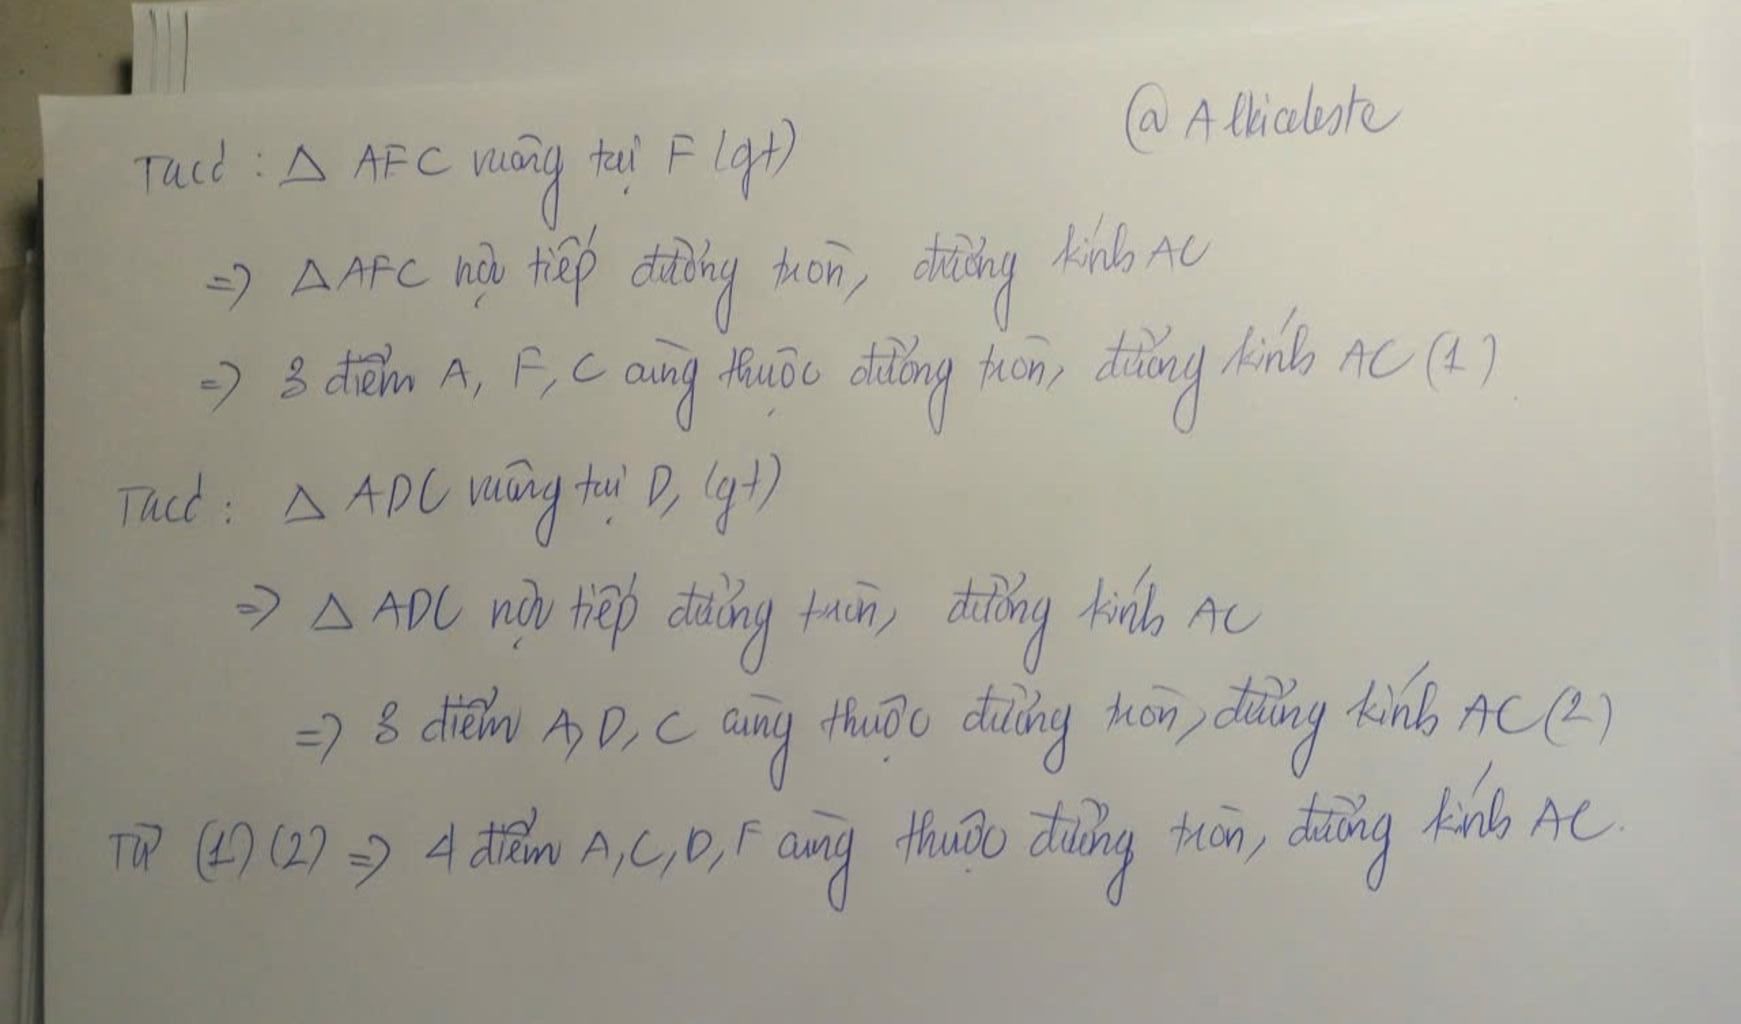 @Alkiceleste
Ta có : Δ AFC vuông tại F (gt)
=> Δ AFC nội tiếp đường tròn, đường kính AC
=> 3 điểm A, F, C cùng thuộc đường tròn, đường kính AC (1)
Ta có : Δ ADC vuông tại D, (gt)
=> Δ ADC nội tiếp đường tròn, đường kính AC
=> 3 điểm A, D, C cùng thuộc đường tròn, đường kính AC (2)
Từ (1) (2) => 4 điểm A, C, D, F cùng thuộc đường tròn, đường kính AC.